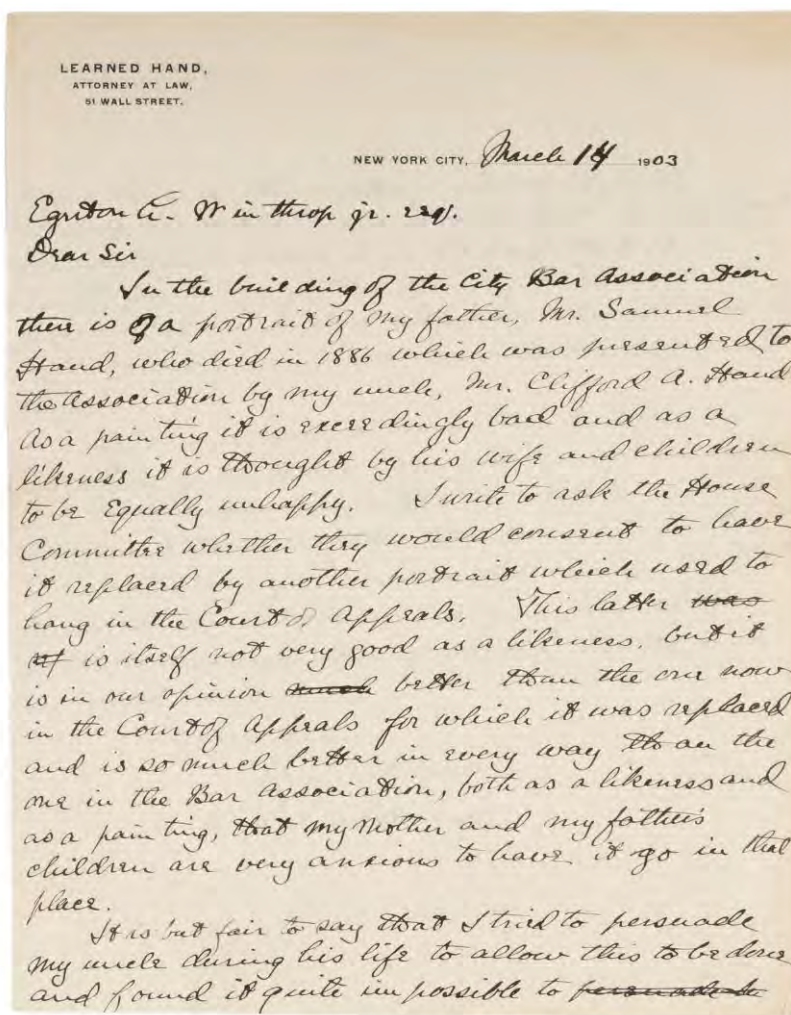 LEARNED HAND,
ATTORNEY AT LAW,
51 WALL STREET.
NEW YORK CITY, March 14 1903
Egerton L. Winthrop jr. esq.
Dear Sir
In the building of the City Bar Association
there is a portrait of my father, Mr. Samuel
Hand, who died in 1886 which was presented to
the Association by my uncle, Mr. Clifford A. Hand
As a painting it is exceedingly bad and as a
likeness it is thought by his wife and children
to be equally unhappy. I write to ask the House
Committee whether they would consent to have
it replaced by another portrait which used to
hang in the Court of Appeals. This latter was
is itself not very good as a likeness, but it
is in our opinion much better than the one now
in the Court of Appeals for which it was replaced
and is so much better in every way than the
one in the Bar Association, both as a likeness and
as a painting, that my Mother and my father's
children are very anxious to have it go in that
place.
It is but fair to say that I tried to persuade
my uncle during his life to allow this to be done
and found it quite impossible to persuade